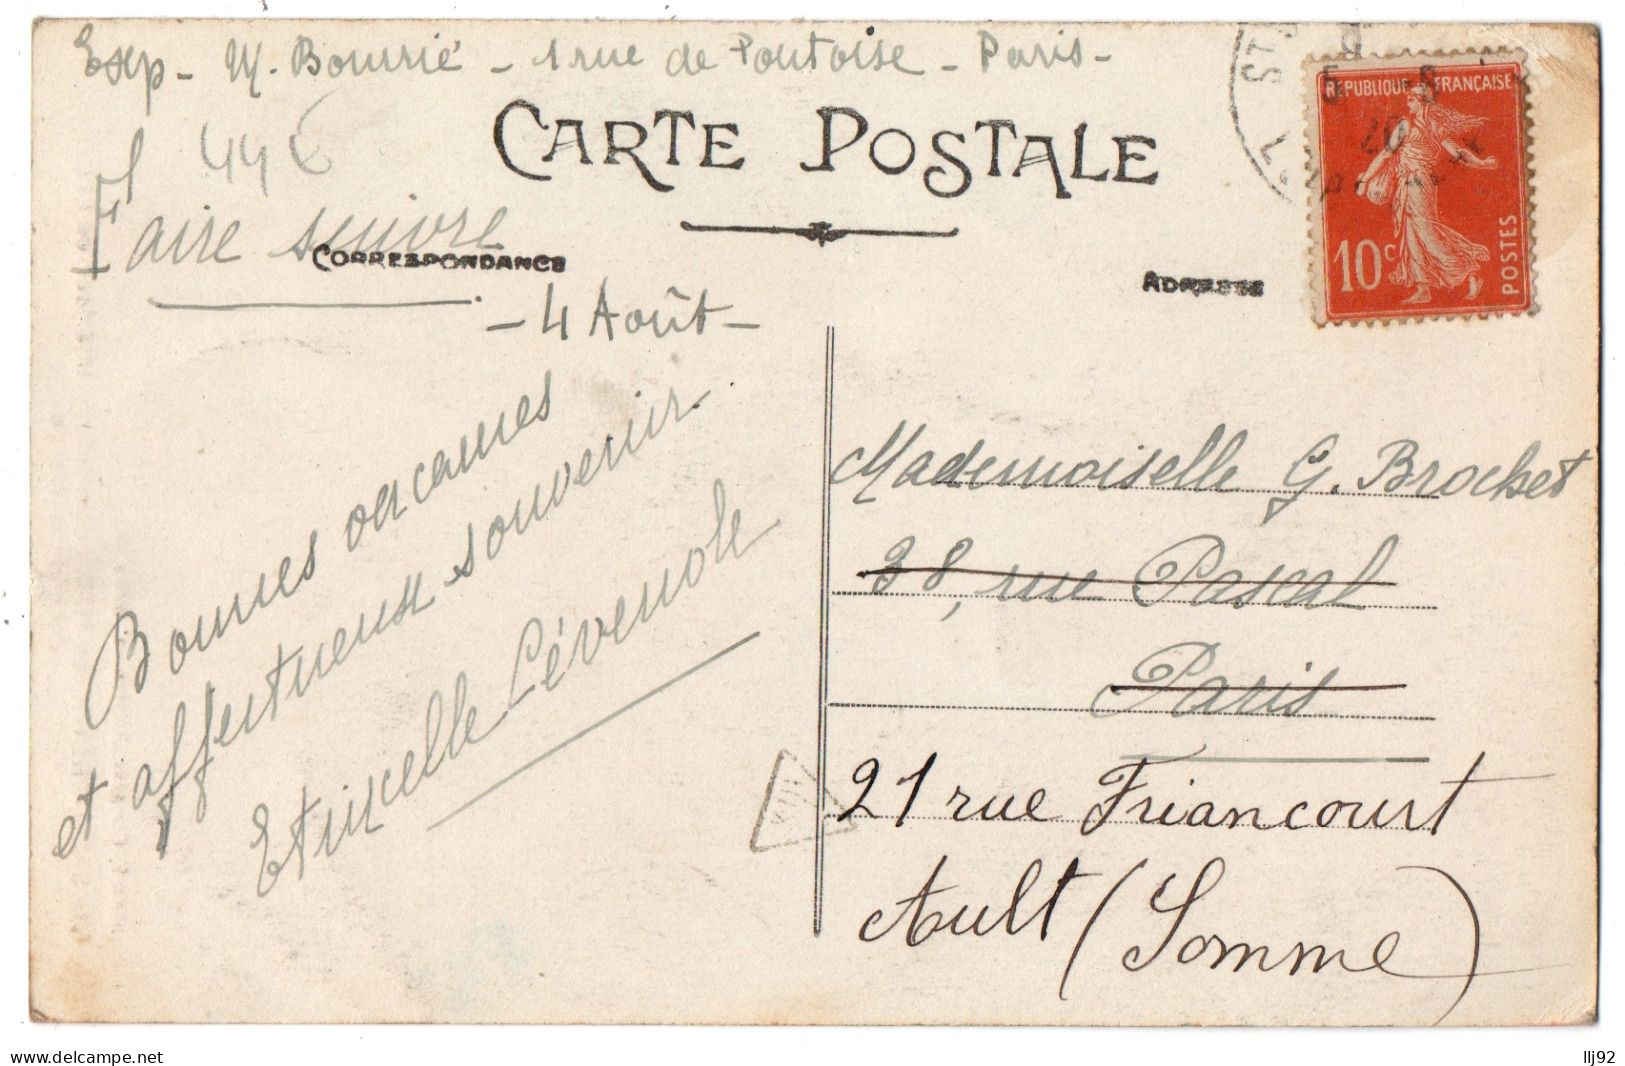 Exp - M. Bourrié - 1 rue de Pontoise - Paris -
44€
CARTE POSTALE
Faire suivre
CORRESPONDANCE
ADRESSE
- 4 Août -
Bonnes vacances
et affectueux souvenir.
Cévenole
RÉPUBLIQUE FRANÇAISE
10c
POSTES
5 - 8
20
Mademoiselle G. Brochet
38, rue Pascal
Paris
21 rue Friancourt
Ault (Somme)
llj92